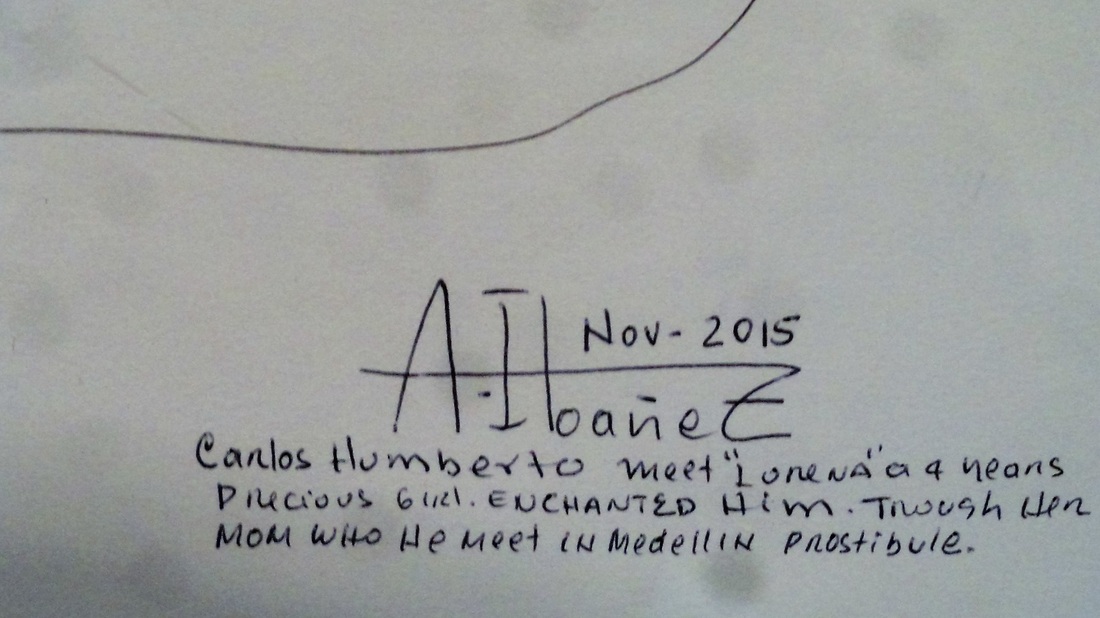 Nov- 2015
A. Ibañez
Carlos Humberto meet "Lorena" a 4 years
Precious Girl. ENCHANTED Him. Trough Her
MOM WHO He Meet in Medellin Prostibule.